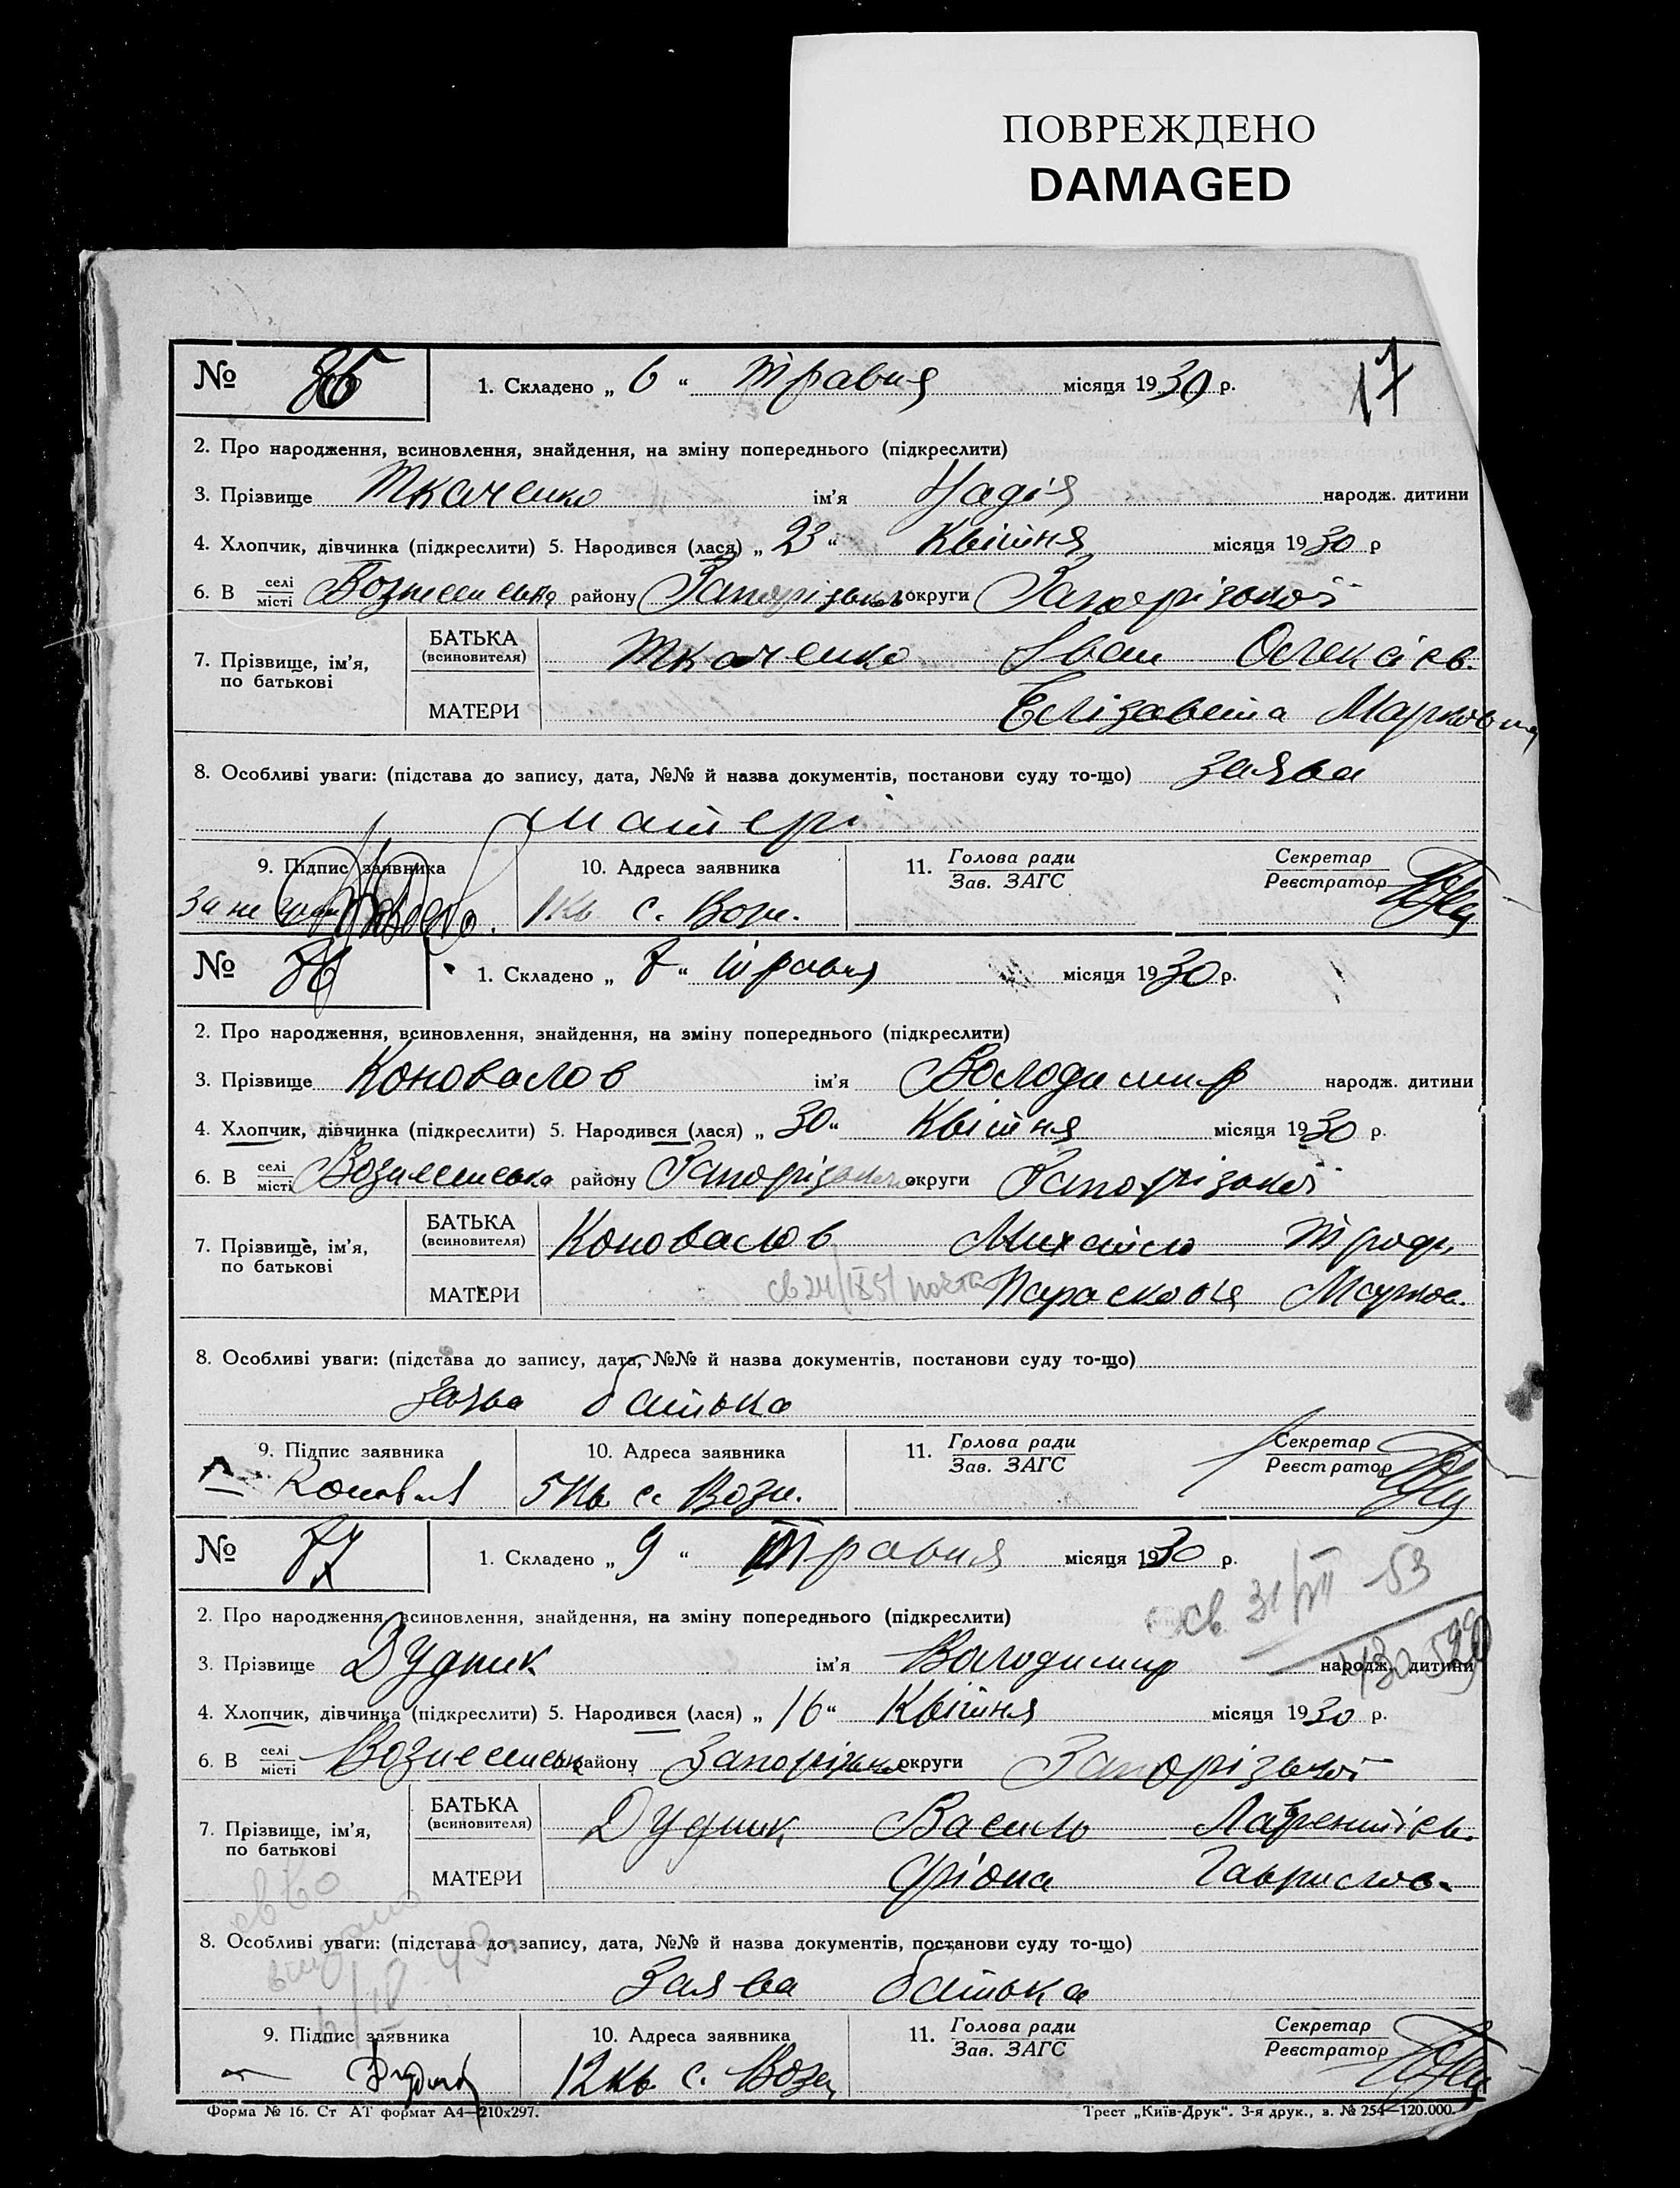 ПОВРЕЖДЕНО
DAMAGED
17
№ 85 1. Складено „ 6 “ травня місяця 1930 р.
2. Про народження, всиновлення, знайдення, на зміну попереднього (підкреслити)
3. Прізвище Ткаченко ім’я Надія народж. дитини
4. Хлопчик, дівчинка (підкреслити) 5. Народився (лася) „ 23 “ Квітня місяця 1930 р
6. В селі місті Вознесенська району Запорізького округи Запорізької
7. Прізвище, ім’я, по батькові
БАТЬКА (всиновителя) Ткаченко Іван Олексієв.
МАТЕРИ Елізавета Марковна
8. Особливі уваги: (підстава до запису, дата, №№ й назва документів, постанови суду то-що) заява
матері
9. Підпис заявника 10. Адреса заявника 11. Голова ради Зав. ЗАГС Секретар Реєстратор
За не 1 кв с. Возн.
№ 86 1. Складено „ 7 “ травня місяця 1930 р.
2. Про народження, всиновлення, знайдення, на зміну попереднього (підкреслити)
3. Прізвище Коновалов ім’я Володимир народж. дитини
4. Хлопчик, дівчинка (підкреслити) 5. Народився (лася) „ 30 “ Квітня місяця 1930 р.
6. В селі місті Вознесенська району Запорізького округи Запорізької
7. Прізвище, ім’я, по батькові
БАТЬКА (всиновителя) Коновалов Михайло Трофи.
МАТЕРИ св 24/IX 51 почта Парасковія Марков.
8. Особливі уваги: (підстава до запису, дата, №№ й назва документів, постанови суду то-що)
Заява батька
9. Підпис заявника 10. Адреса заявника 11. Голова ради Зав. ЗАГС Секретар Реєстратор
Коновалов 5 кв с. Возн.
№ 87 1. Складено „ 9 “ Травня місяця 1930 р.
св. 31/VII 53
2. Про народження, всиновлення, знайдення, на зміну попереднього (підкреслити)
3. Прізвище Дудник ім’я Володимир народж. дитини
4. Хлопчик, дівчинка (підкреслити) 5. Народився (лася) „ 16 “ Квітня місяця 1930 р.
6. В селі місті Вознесенськ району Запорізьк округи Запорізької
7. Прізвище, ім’я, по батькові
БАТЬКА (всиновителя) Дудник Василь Лаврентієв.
МАТЕРИ Фіона Гаврилов.
св во
видано
8. Особливі уваги: (підстава до запису, дата, №№ й назва документів, постанови суду то-що)
Заява батька
9. Підпис заявника 10. Адреса заявника 11. Голова ради Зав. ЗАГС Секретар Реєстратор
Дудник 12 кв. с. Возн
Форма № 16. Ст АТ формат А4—210х297. Трест „Київ-Друк“. 3-я друк., з. № 254—120.000.